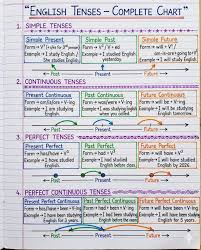 "ENGLISH TENSES – COMPLETE CHART"
1. SIMPLE TENSES
Simple Present
Simple Past
Simple Future
Example = I study English /
She studies English
Example = I studied English
yesterday
Example = I will study English
Past
Present
Future
2. CONTINUOUS TENSES
Present Continuous
Past Continuous
Future Continuous
Form = am/is/are + V-ing
Form = was/were + V-ing
Form = will be + V-ing
Example = I am studying
English now
Example = I was studying
English
Example = I will be studying
English tomorrow.
Past
Present
Future
3. PERFECT TENSES
Present Perfect
Past Perfect
Future Perfect
Example = I have studied
English
Example = I had studied
English before class
Example = I will have studied
English by 2026
Past
Present
Future
4. PERFECT CONTINUOUS TENSES
Present Perfect Continuous
Past Perfect Continuous
Future Perfect Continuous
Form = has/have + been + V-ing
Form = had + been + V-ing
Form = will have been + V-ing
Example = I have been studying
English for 3 years
Example = I had been studying
English before the exam
Example = I will have been studying
English for 5 years
Past
Present
Future